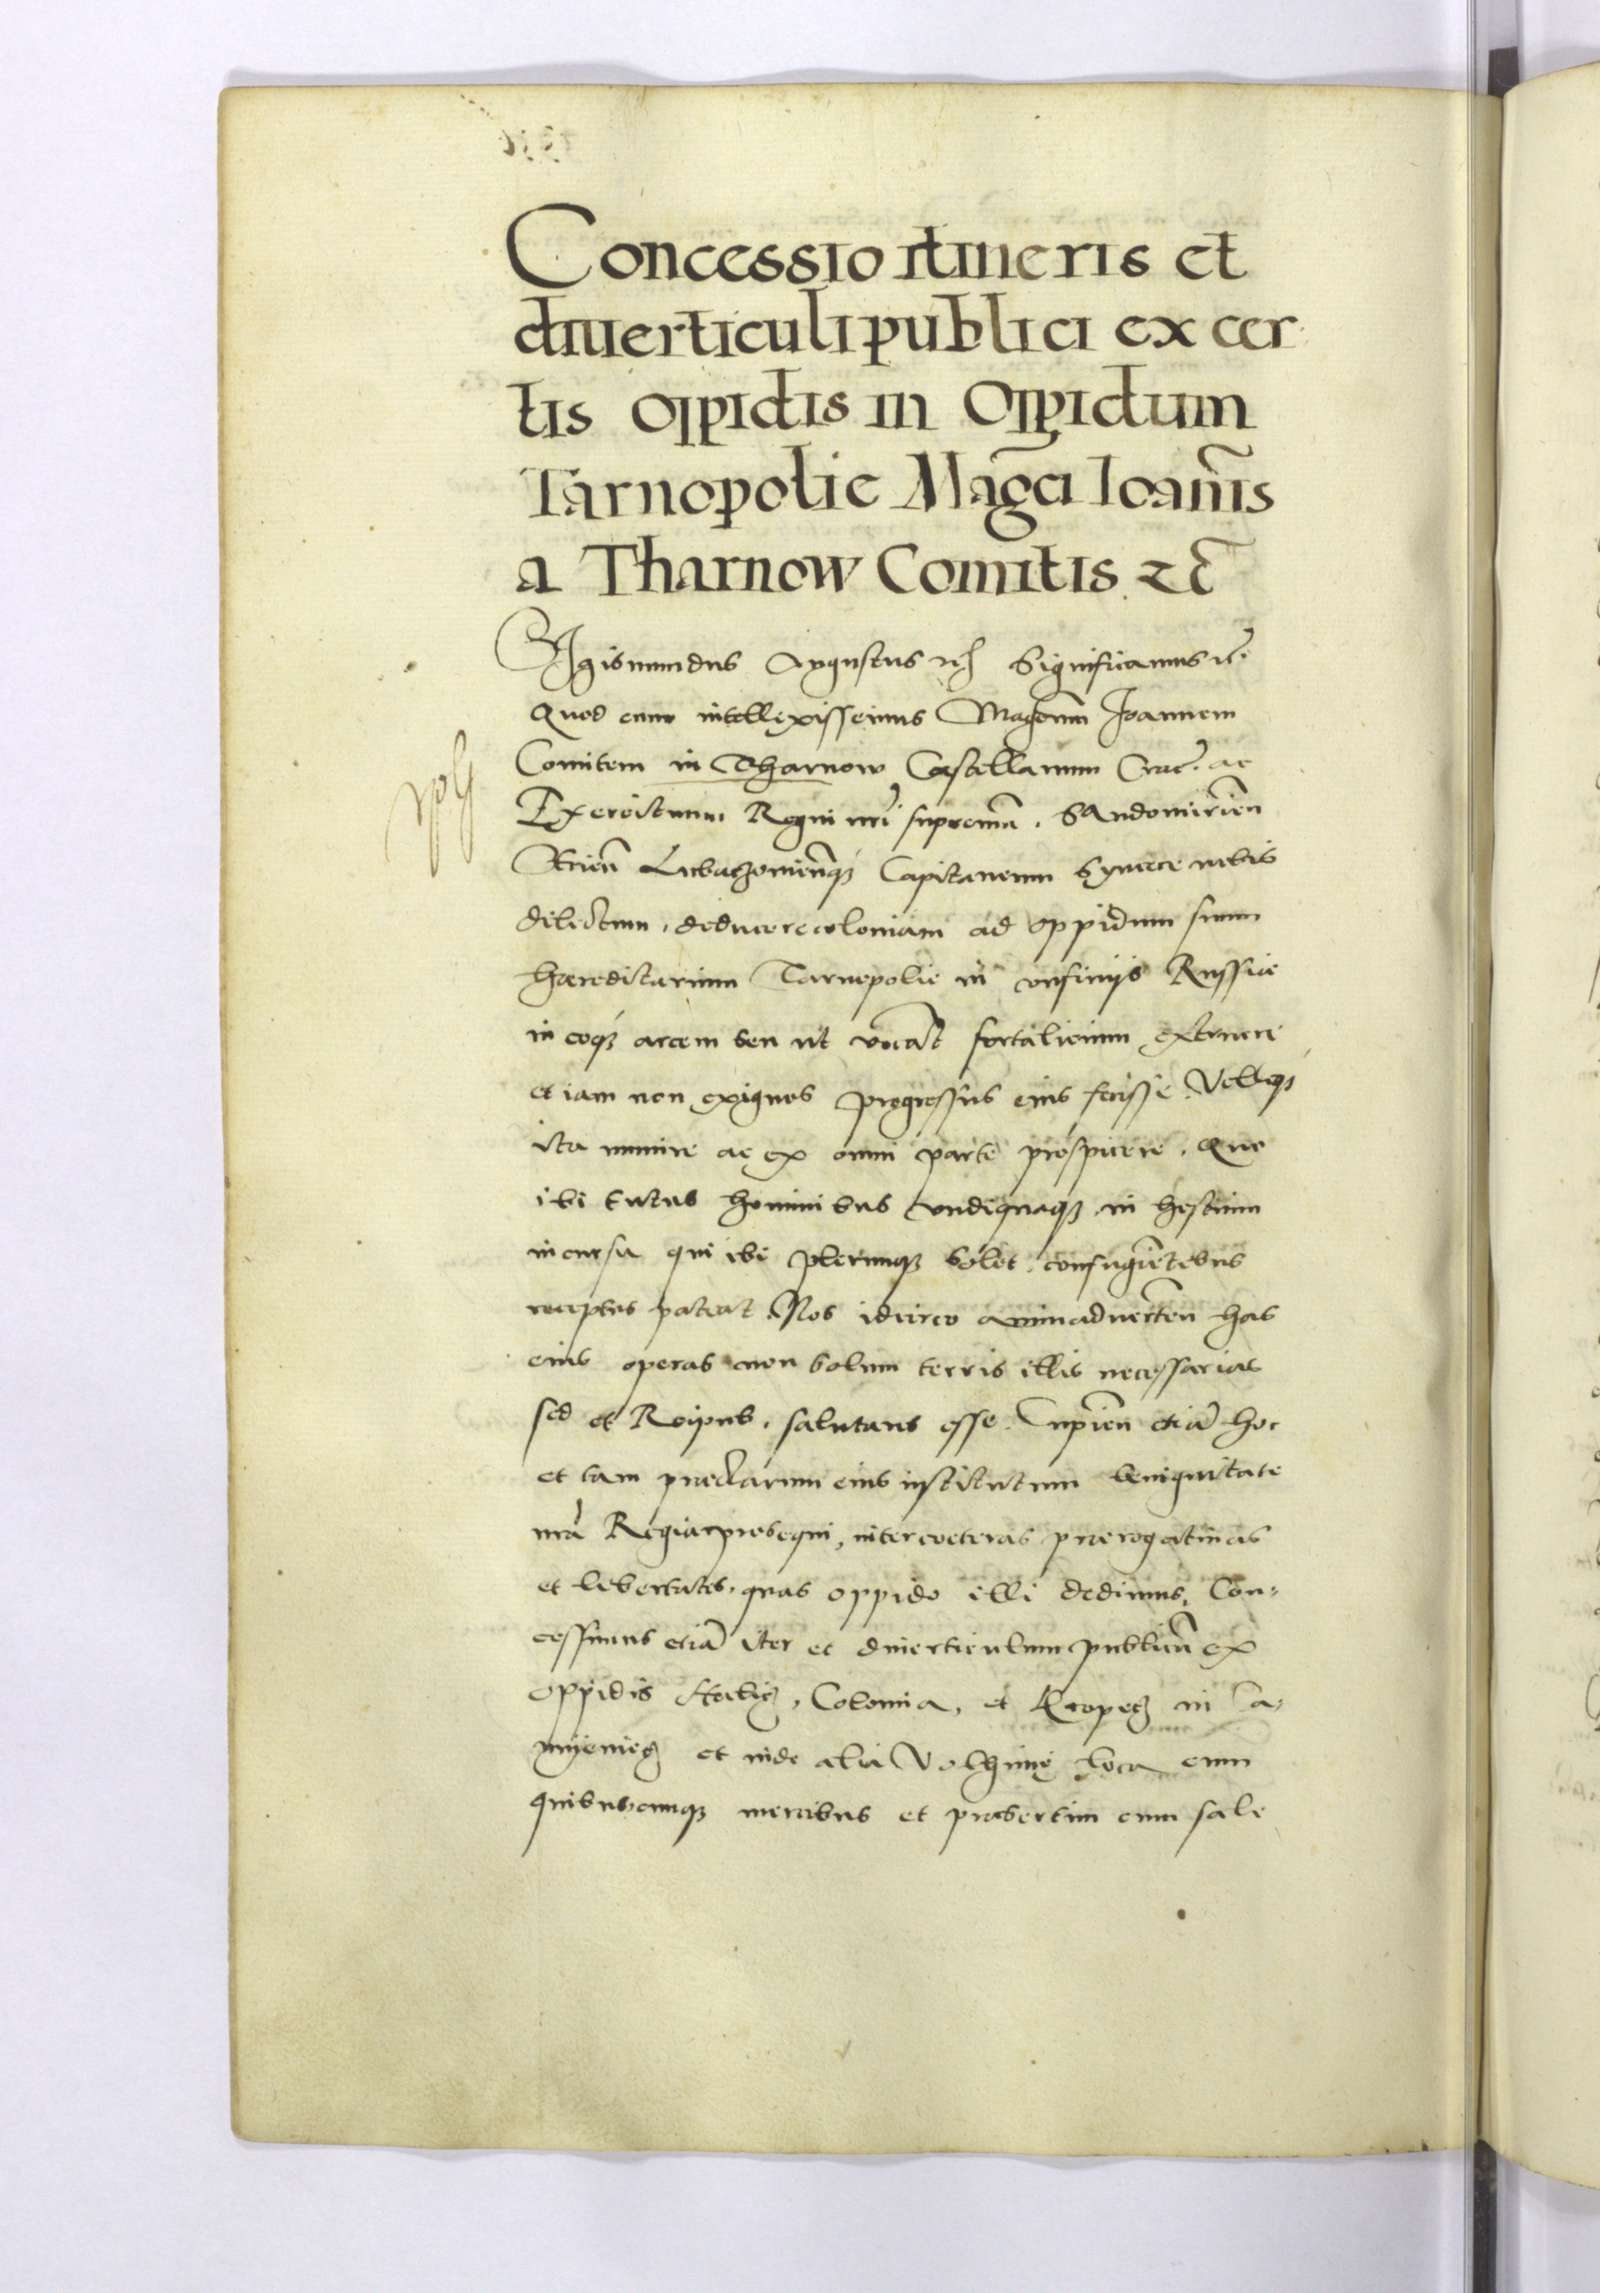 Concessio itineris et
diuerticuli publici ex cer
tis oppidis in Oppidum
Tarnopolie Magci Ioannis
a Tharnow Comitis zc
Sigismundus Augustus zc Significamus zc.
Quod cum intellexissemus Magcum Ioannem
Comitem in Tharnow Castellanum Crac. ac
Exercituum Regni nri supremu. Sandomirien
Strien Lubaczouienq Capitaneum Syncere nobis
dilectum, deducere coloniam ad oppidum suum
haereditarium Tarnopolie in confinijs Russiae
in eoq arcem seu ut vocat fortalicium extruere
et iam non exiguos progressus eius fecisse. Velleq
ita munire ac ex omni parte prospicere. Quo
ibi tutus hominibus undiquaq in hostium
incursu qui ibi plerumq solet, confugietibus
receptus pateat. Nos idcirco animaduerten has
eius operas non solum terris illis necessarias
sed et Reipub. salutares esse. Cupien etia hoc
et tam praeclarum eius institutum benignitate
nra Regia prosequi, inter coeteras praerogatiuas
et libertates, quas oppido illi dedimus, Con-
cessimus etia iter et diuerticulum publicu ex
oppidis Halicz, Colomia, et Kropecz in Ca-
myeniecz et inde alia Volhinie loca cum
quibuscunq mercibus et praesertim cum sale